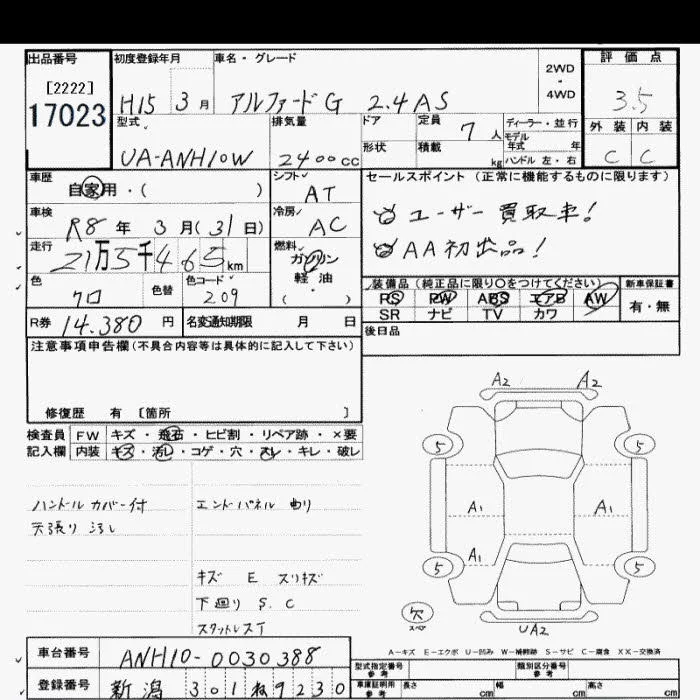 出品番号
[2222]
17023
初度登録年月
H15 3月
車名・グレード
アルファードG 2.4 AS
2WD
・
4WD
評価点
3.5
外装 内装
C C
型式
UA-ANH10W
排気量
2400cc
ドア
形状
定員 7人
積載 kg
ディーラー・並行
モデル年式 年
ハンドル 左・右
車歴
自家用・( )
シフト
AT
セールスポイント (正常に機能するものに限ります)
ユーザー買取車!
AA初出品!
車検
R8年 3月(31日)
冷房
AC
走行
21万5千465km
燃料
ガソリン
軽油
( )
色
クロ
色替
色コード
209
装備品 (純正品に限り〇をつけてください)
PS PW ABS エアB AW
SR ナビ TV カワ
新車保証書
有・無
R券 14.380円
名変通知期限 月 日
後日品
注意事項申告欄 (不具合内容等は具体的に記入して下さい)
修復歴 有 〔箇所 〕
検査員記入欄
FW キズ・飛石・ヒビ割・リペア跡・×要
内装 キズ・汚レ・コゲ・穴・スレ・キレ・破レ
ハンドルカバー付
天張り汚レ
エンドパネル 曲り
キズ E スリキズ
下廻り S.C
スタットレスT
A2 A2
5 5
A1 A1
A1
5 5
欠
スペア
UA2
A-キズ E-エクボ U-凹み W-補修跡 S-サビ C-腐食 XX-交換済
車台番号
ANH10-0030388
登録番号
新潟 301 ね 9230
型式指定番号
参考
類別区分番号
参考
車庫証明用
参考
長さ cm
幅 cm
高さ cm